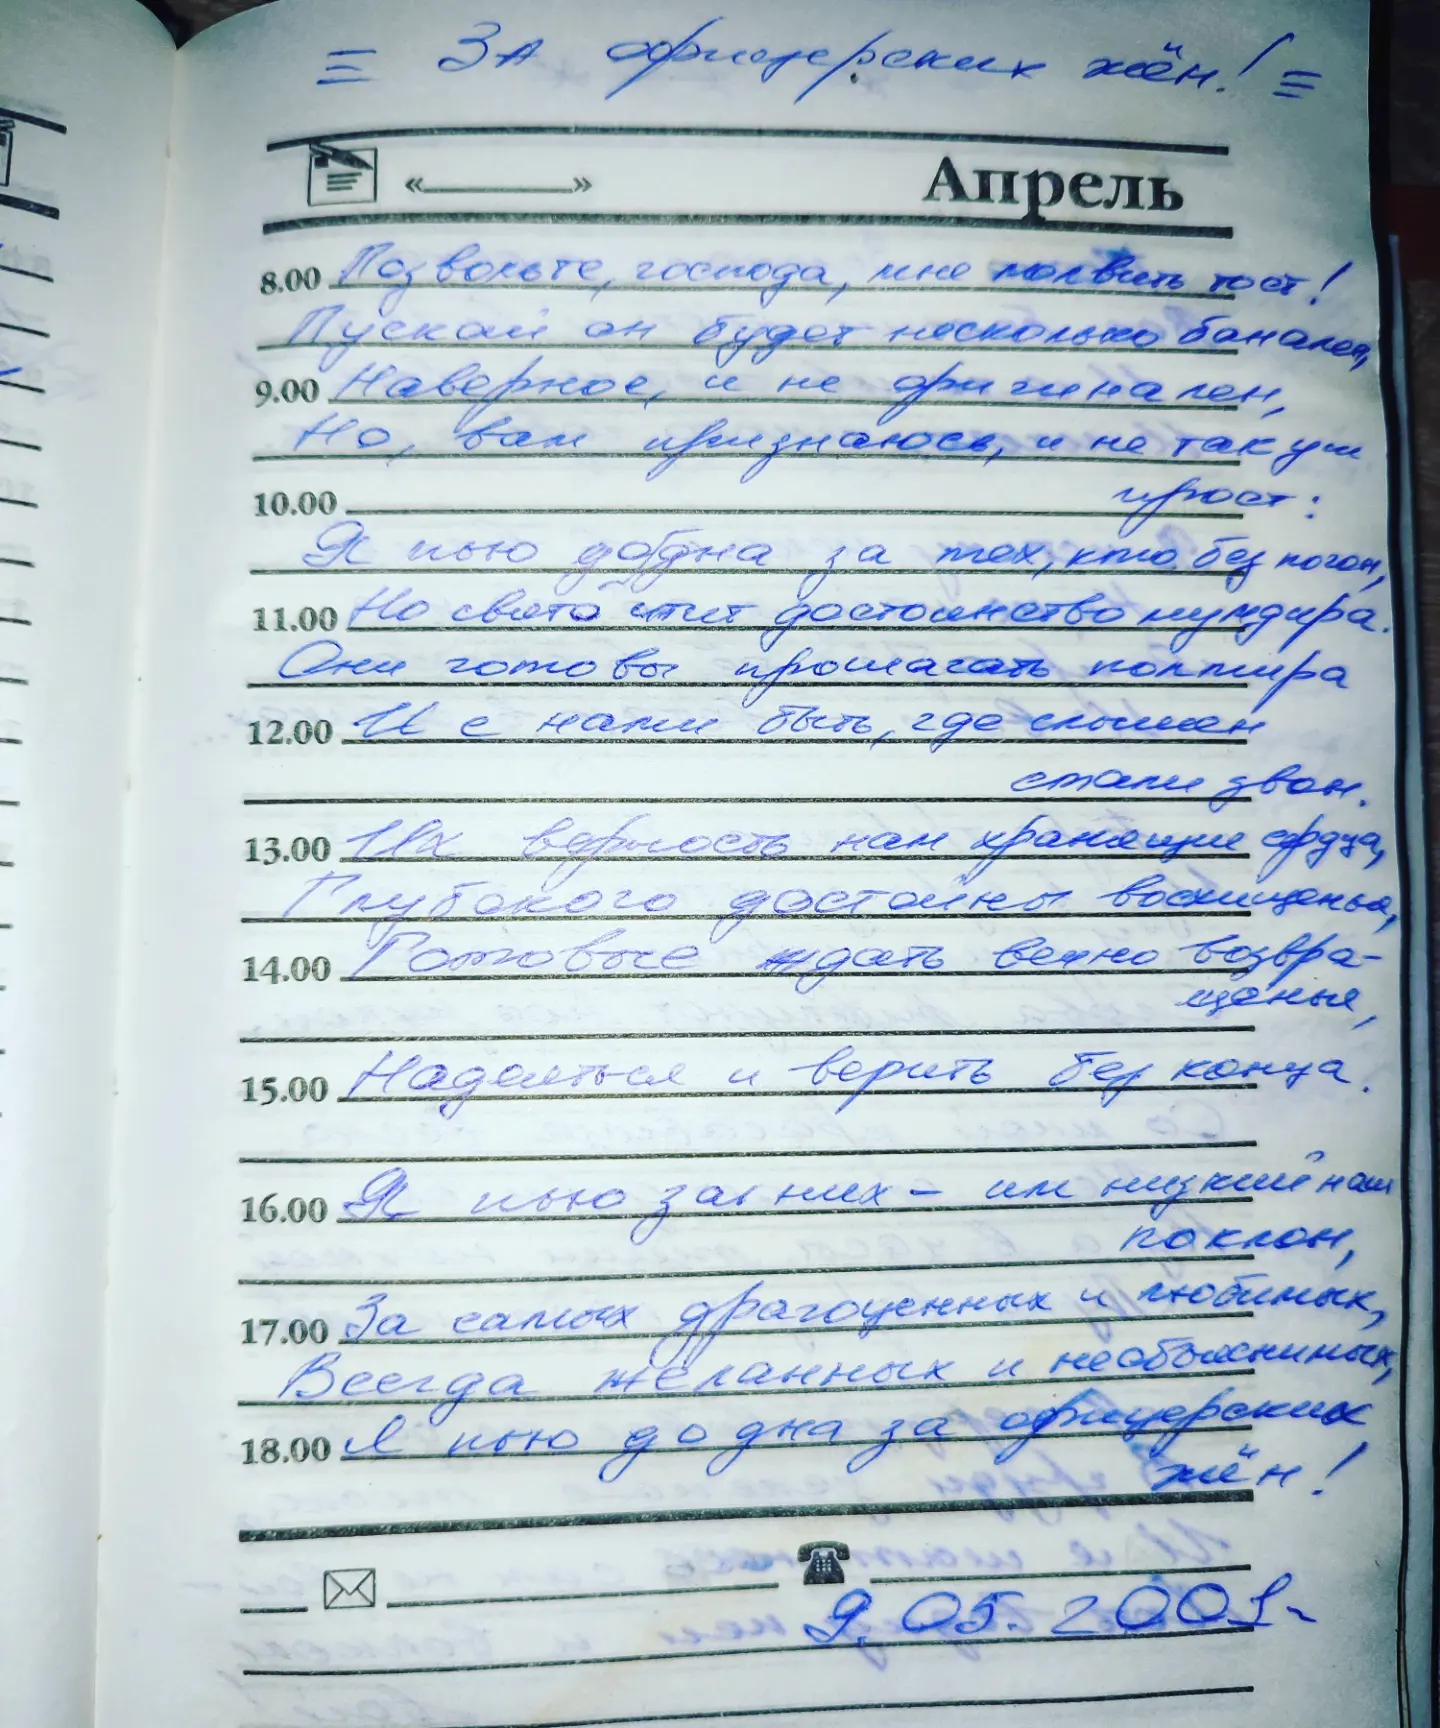 = За офицерских жён! =
« » Апрель
8.00 Позвольте, господа, мне молвить тост!
Пускай он будет несколько банален,
9.00 Наверное, и не оригинален,
Но, вам признаюсь, и не так уж
10.00 прост:
Я пью до дна за тех, кто без погон,
11.00 Но свято чтит достоинство мундира.
Они готовы прошагать полмира
12.00 И с нами быть, где слышен
стали звон.
13.00 Их верность нам хранящие сердца,
Глубокого достойны восхищенья,
14.00 Готовые ждать вечно возвра-
щенья,
15.00 Надеяться и верить без конца.
16.00 Я пью за них - им низкий наш
поклон,
17.00 За самых драгоценных и любимых,
Всегда желанных и необъяснимых,
18.00 Я пью до дна за офицерских
жён!
9.05.2001г